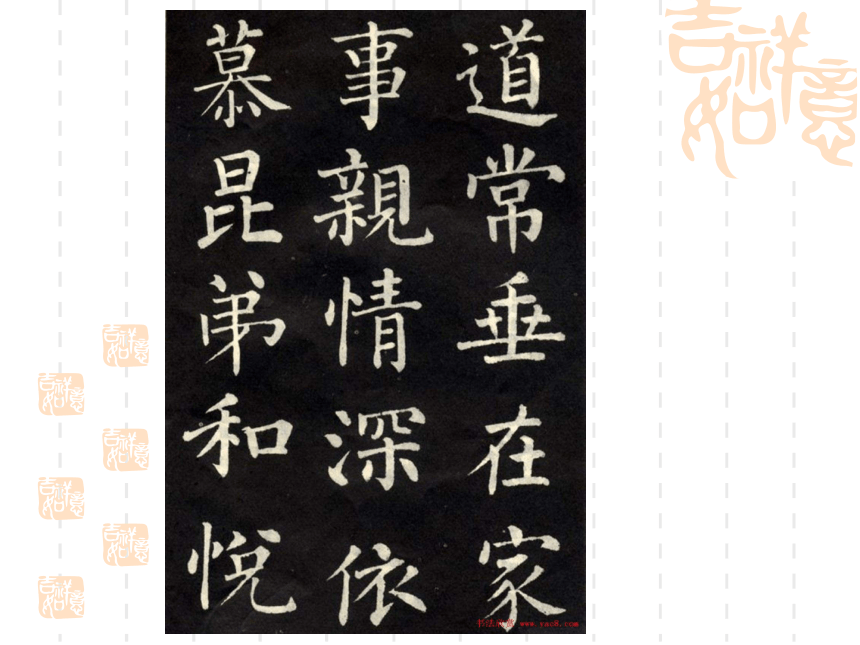 道常垂在家
事親情深依
慕昆弟和悅
吉祥如意
吉祥如意
吉祥如意
吉祥如意
吉祥如意
吉祥如意
吉祥如意
www.yac8.com